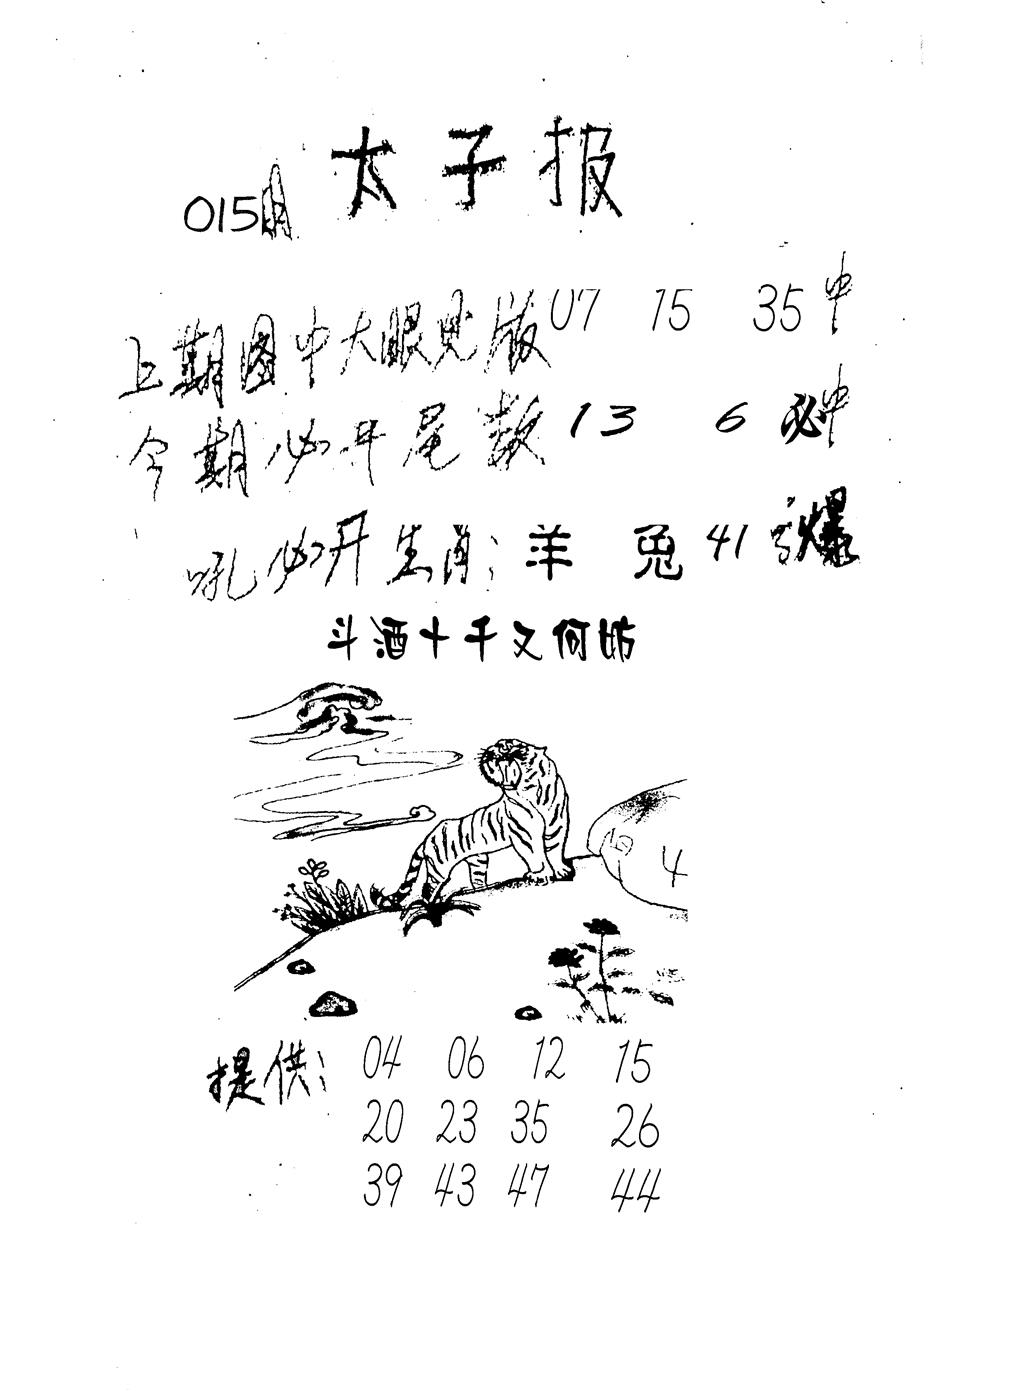 太子报
015期
上期图中大眼见版07 15 35中
今期必开尾数13 6 必中
吼必开生肖：羊 兔 41 引爆
斗酒十千又何妨
4
提供： 04 06 12 15
20 23 35 26
39 43 47 44